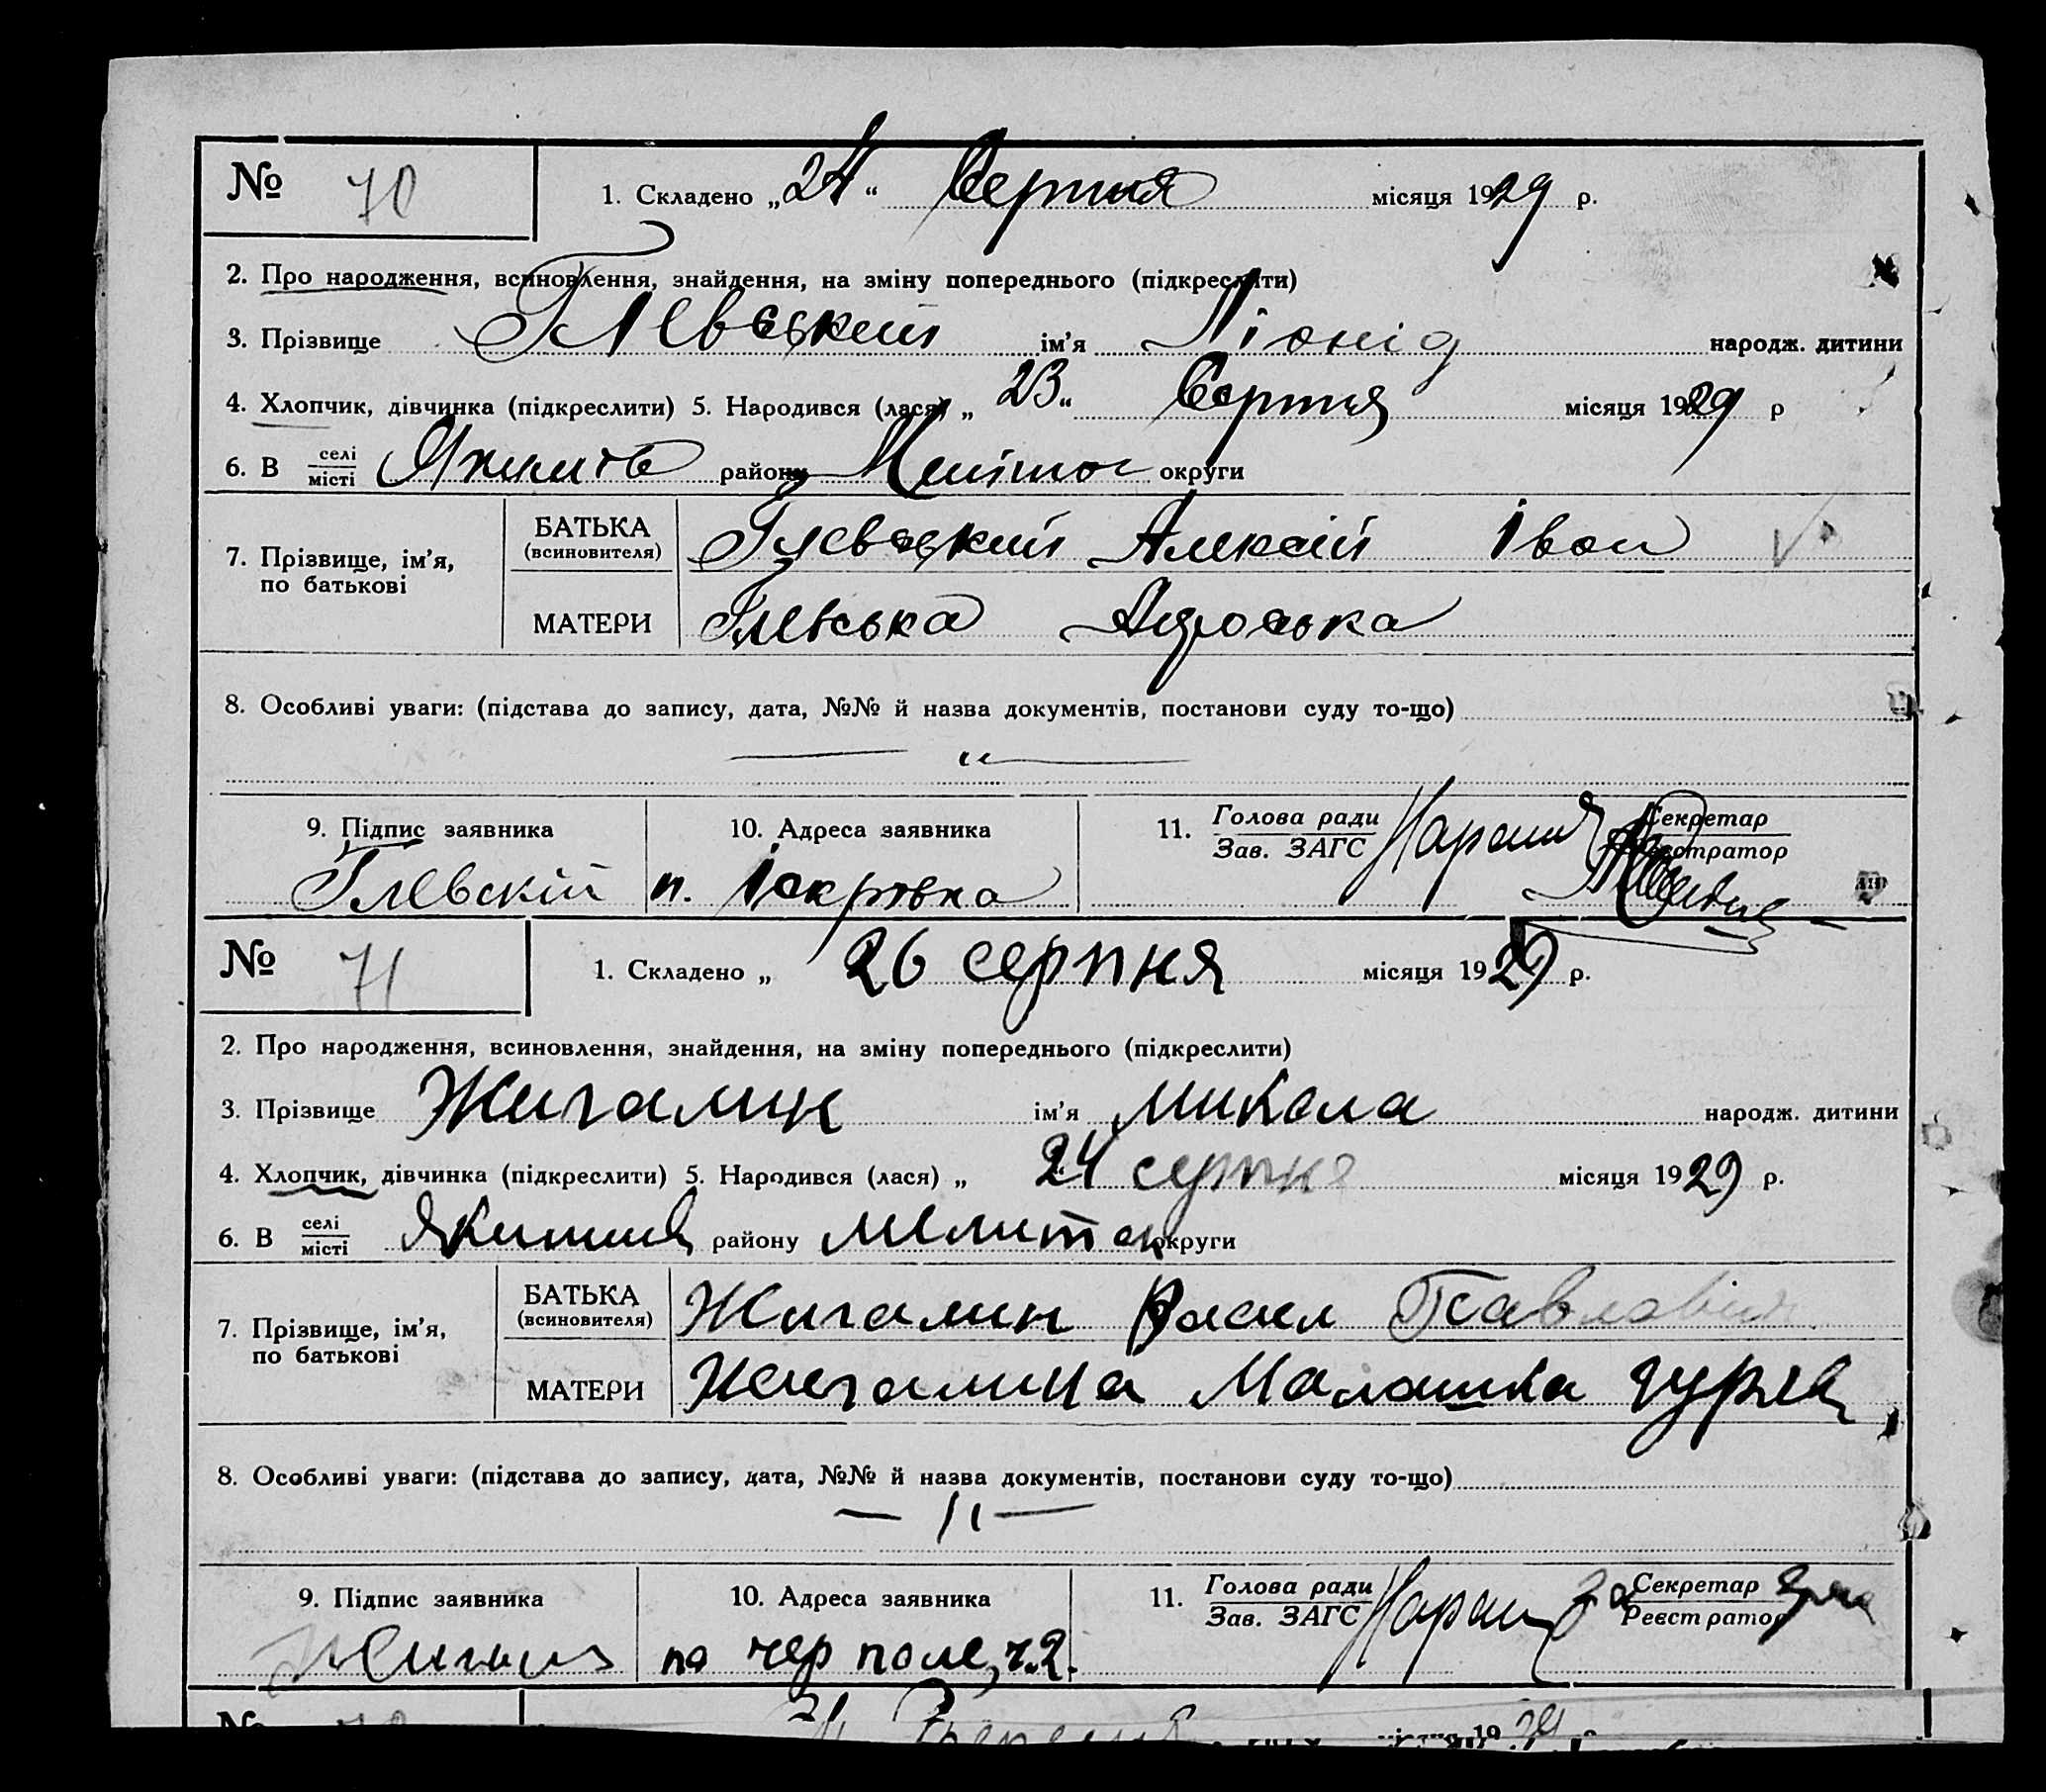 № 70 1. Складено „24“ Серпня місяця 1929 р.
2. Про народження, всиновлення, знайдення, на зміну попереднього (підкреслити)
3. Прізвище Глевський ім’я Ліонід народж. дитини
4. Хлопчик, дівчинка (підкреслити) 5. Народився (лася) „23“ Серпня місяця 1929 р
6. В селі/місті району округи
7. Прізвище, ім’я, по батькові
БАТЬКА (всиновителя) Глевський Алексій Іван
МАТЕРИ Глевська
8. Особливі уваги: (підстава до запису, дата, №№ й назва документів, постанови суду то-що)
— „ —
9. Підпис заявника 10. Адреса заявника 11. Голова ради/Зав. ЗАГС Секретар/Реєстратор
Глевскій п. Іскровка
№ 71 1. Складено „ 26 серпня місяця 1929 р.
2. Про народження, всиновлення, знайдення, на зміну попереднього (підкреслити)
3. Прізвище Жигалин ім’я Микола народж. дитини
4. Хлопчик, дівчинка (підкреслити) 5. Народився (лася) „ 24 серпня місяця 1929 р.
6. В селі/місті району Мелитоп округи
7. Прізвище, ім’я, по батькові
БАТЬКА (всиновителя) Жигалин Васил Павлович
МАТЕРИ Жигалина Малашка
8. Особливі уваги: (підстава до запису, дата, №№ й назва документів, постанови суду то-що)
— „ —
9. Підпис заявника 10. Адреса заявника 11. Голова ради/Зав. ЗАГС За Секретар/Реєстратор
по чер поле, ч.2.